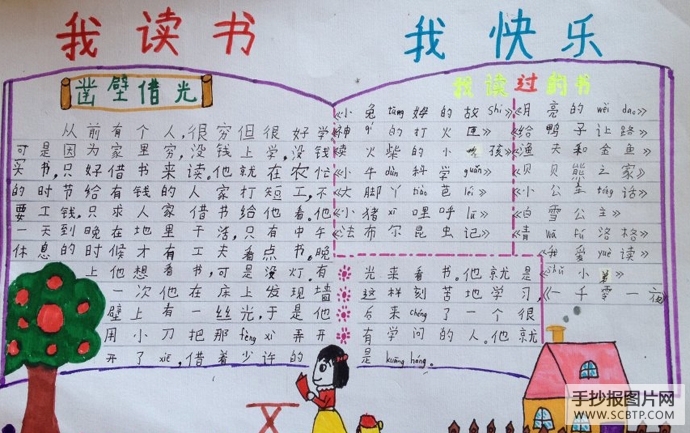 我读书 我快乐
凿壁借光
从前有个人,很穷但很好学
可是因为家里穷,没钱上学,没钱
买书,只好借书来读。他就在农忙
的时节给有钱的人家打短工,不
要工钱,只求人家借书给他看。他
一天到晚在地里干活,只有中午
休息的时候才有工夫看点书。晚
上他想看书,可是没灯有
一次他在床上发现墙
壁上有一丝光,于是他
用小刀把那fèng xì弄开
开了xiē,借着少许的
光来看书。他就是
这样刻苦地学习,
后来chéng了一个很
有学问的人。他就
是kuāng héng.
我读过的书
《小兔tāng姆的故shi》
《神qí的打火匣》
《卖火柴的小女孩》
《小牛dùn科学guǎn》
《大脚丫tiào芭lěi》
《小猪xī哩呼lū》
《法布尔昆虫记》
《月亮的wèi dao》
《给鸭子让路》
《渔夫和金鱼》
《贝贝熊之家》
《小公主tóng话》
《白雪公主》
《青wā fú洛格》
《我爱yuè读》
《shǔ小弟》
《一千零一夜》
手抄报图片网
WWW.SCBTP.COM